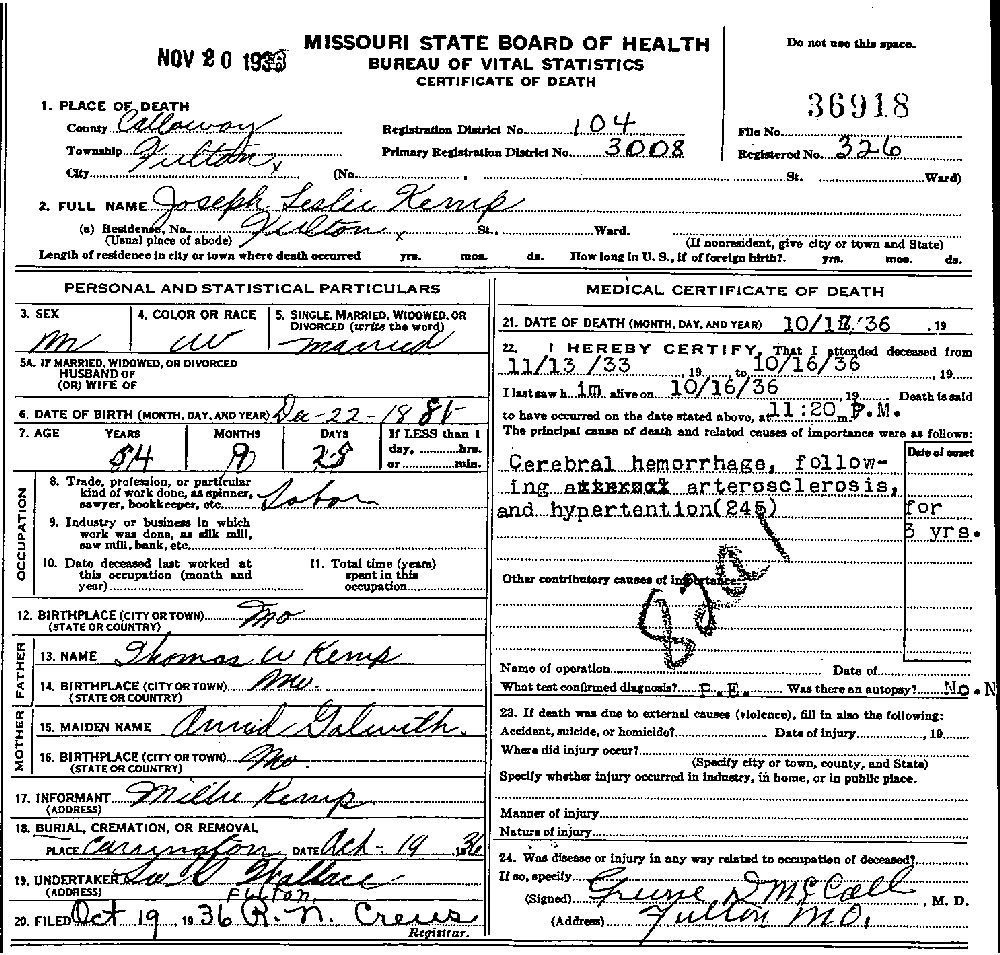 NOV 20 1936
MISSOURI STATE BOARD OF HEALTH
BUREAU OF VITAL STATISTICS
CERTIFICATE OF DEATH
Do not use this space.
36918
1. PLACE OF DEATH
County Calloway Registration District No. 104 File No.
Township Fulton Primary Registration District No. 3008 Registered No. 326
City (No. , St. Ward)
2. FULL NAME Joseph Leslie Kemp
(a) Residence, No. Fulton St., Ward.
(Usual place of abode) (If nonresident, give city or town and State)
Length of residence in city or town where death occurred yrs. mos. ds. How long in U. S., if of foreign birth? yrs. mos. ds.
PERSONAL AND STATISTICAL PARTICULARS
3. SEX 4. COLOR OR RACE 5. SINGLE, MARRIED, WIDOWED, OR
DIVORCED (write the word)
M W Married
5A. IF MARRIED, WIDOWED, OR DIVORCED
HUSBAND OF
(OR) WIFE OF
6. DATE OF BIRTH (MONTH, DAY, AND YEAR) Dec-22-18
7. AGE YEARS MONTHS DAYS If LESS than 1
day, hrs.
or min.
54 9 25
OCCUPATION
8. Trade, profession, or particular
kind of work done, as spinner,
sawyer, bookkeeper, etc. Labor
9. Industry or business in which
work was done, as silk mill,
saw mill, bank, etc.
10. Date deceased last worked at
this occupation (month and
year)
11. Total time (years)
spent in this
occupation
12. BIRTHPLACE (CITY OR TOWN) Mo
(STATE OR COUNTRY)
FATHER
13. NAME Thomas W Kemp
14. BIRTHPLACE (CITY OR TOWN) Mo.
(STATE OR COUNTRY)
MOTHER
15. MAIDEN NAME Galwith.
16. BIRTHPLACE (CITY OR TOWN) Mo.
(STATE OR COUNTRY)
17. INFORMANT Millie Kemp
(ADDRESS)
18. BURIAL, CREMATION, OR REMOVAL
PLACE Carrington DATE Oct-19 1936
19. UNDERTAKER Wallace
(ADDRESS) Fulton.
20. FILED Oct 19, 1936 R. N. Crews
Registrar.
MEDICAL CERTIFICATE OF DEATH
21. DATE OF DEATH (MONTH, DAY, AND YEAR) 10/17/'36 , 19
22. I HEREBY CERTIFY, That I attended deceased from
11/13 /33 , 19 , to 10/16/36 , 19
I last saw h im alive on 10/16/36 , 19 Death is said
to have occurred on the date stated above, at 11:20 P.M.
The principal cause of death and related causes of importance were as follows:
Date of onset
Cerebral hemorrhage, follow-
ing arterosclerosis,
and hypertention(245) for
3 yrs.
Other contributory causes of importance:
82a1
Name of operation Date of
What test confirmed diagnosis? P.E. Was there an autopsy? No.N
23. If death was due to external causes (violence), fill in also the following:
Accident, suicide, or homicide? Date of injury , 19
Where did injury occur?
(Specify city or town, county, and State)
Specify whether injury occurred in industry, in home, or in public place.
Manner of injury
Nature of injury
24. Was disease or injury in any way related to occupation of deceased?
If so, specify
(Signed) D McCall , M. D.
(Address) Fulton MO.